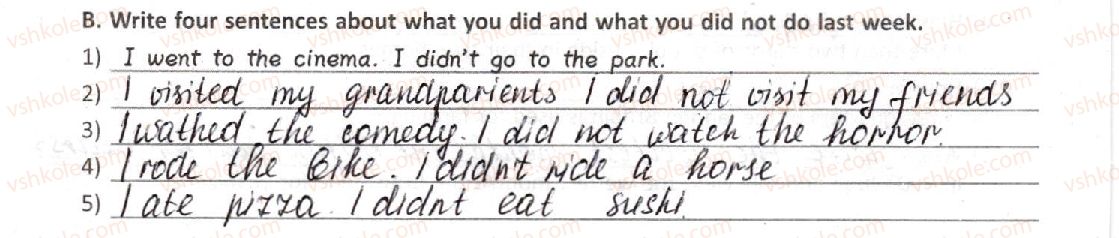 B. Write four sentences about what you did and what you did not do last week.
1) I went to the cinema. I didn't go to the park.
2) I visited my grandparients I did not visit my friends
3) I wathed the comedy. I did not watch the horror.
4) I rode the Bike. I didnt ride a horse
5) I ate pizza. I didnt eat sushi.